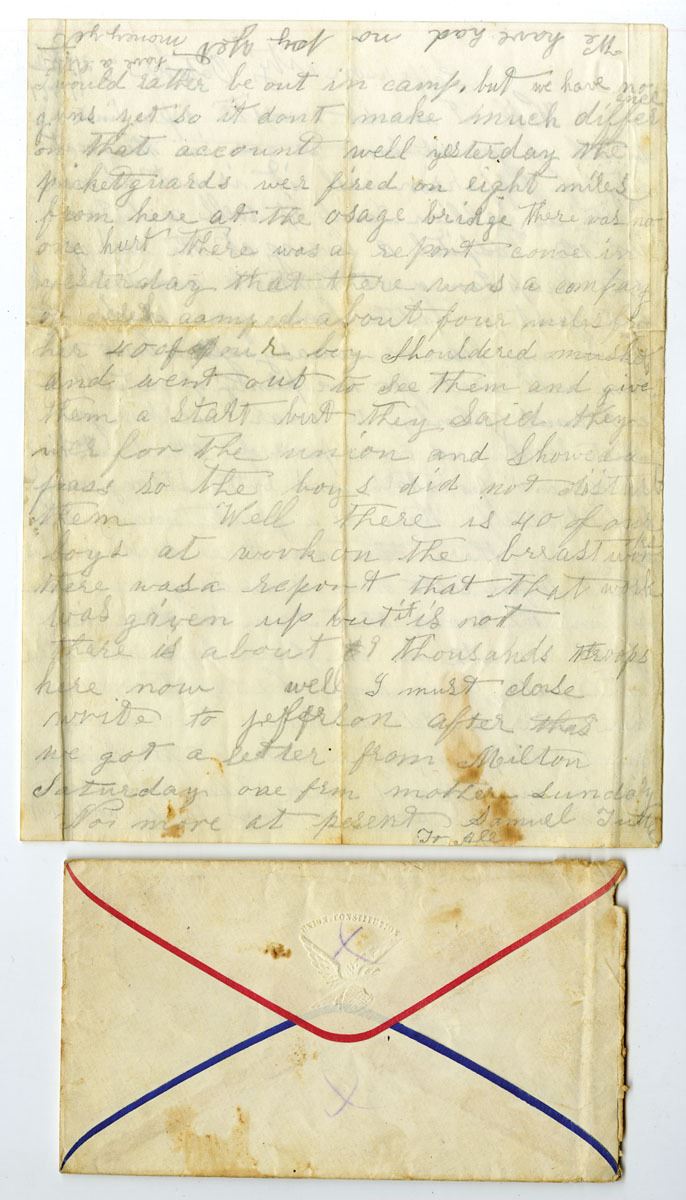 We have had no pay yet
have a little
money yet
I would rather be out in camp, but we have no
guns yet so it dont make much differ
ence
on that account well yesterday the
picketguards wer fired on eight miles
from here at the osage bridge there was no
one hurt there was a report come in
yesterday that there was a company
camped about four miles
her 40 of our boy Shouldered musket
and went out to see them and give
them a Start but they Said they
wer for the union and Showed a
pass so the boys did not disturb
them Well there is 40 of our
boys at work on the brrastwor
there was a report that that work
was given up but it is not
there is about 9 thousands troops
here now well I must close
write to jefferson after this
we got a letter from Milton
Saturday one frm mother Sunday
No more at present Samuel
To All
UNION. CONSTITUTION
X
X